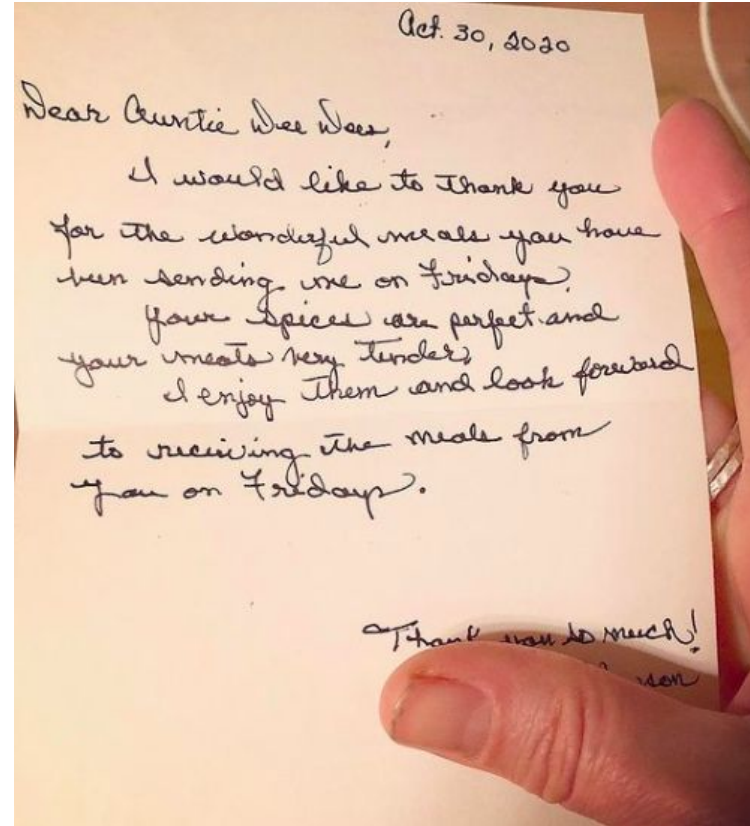 Oct. 30, 2020
Dear Auntie Dee Dees,
I would like to thank you
for the wonderful meals you have
been sending me on Fridays.
Your spices are perfect and
your meats very tender.
I enjoy them and look forward
to receiving the meals from
you on Fridays.
Thank you so much!